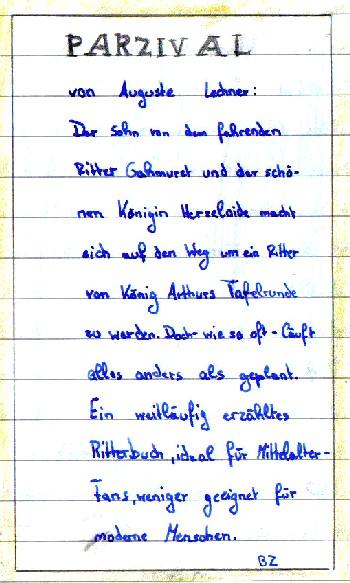 PARZIVAL
von Auguste Lechner:
Der Sohn von dem fahrenden
Ritter Gahmuret und der schö-
nen Königin Herzeloide macht
sich auf den Weg um ein Ritter
von König Arthurs Tafelrunde
zu werden. Doch wie so oft - Läuft
alles anders als geplant.
Ein weitläufig erzähltes
Ritterbuch, ideal für Mittelalter-
Fans, weniger geeignet für
moderne Menschen.
BZ